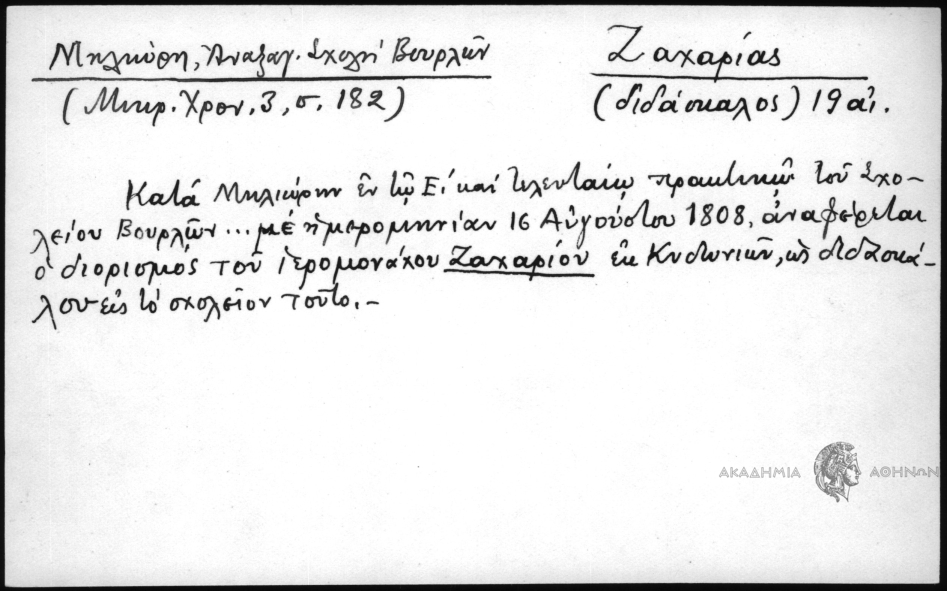 Μηλιώρη, Ἀναξαγ. Σχολή Βουρλῶν
Ζαχαρίας
(Μικρ. Χρον. 3, σ. 182)
(διδάσκαλος) 19 αἰ.
Κατά Μηλιώρην ἐν τῷ Ε΄ καί τελευταίῳ πρακτικῷ τοῦ Σχο-
λείου Βουρλῶν ... μέ ἡμερομηνίαν 16 Αὐγούστου 1808, ἀναφέρεται
ὁ διορισμός τοῦ ἱερομονάχου Ζαχαρίου ἐκ Κυδωνιῶν, ὡς διδασκά-
λου εἰς τό σχολεῖον τοῦτο.-
ΑΚΑΔΗΜΙΑ ΑΘΗΝΩΝ